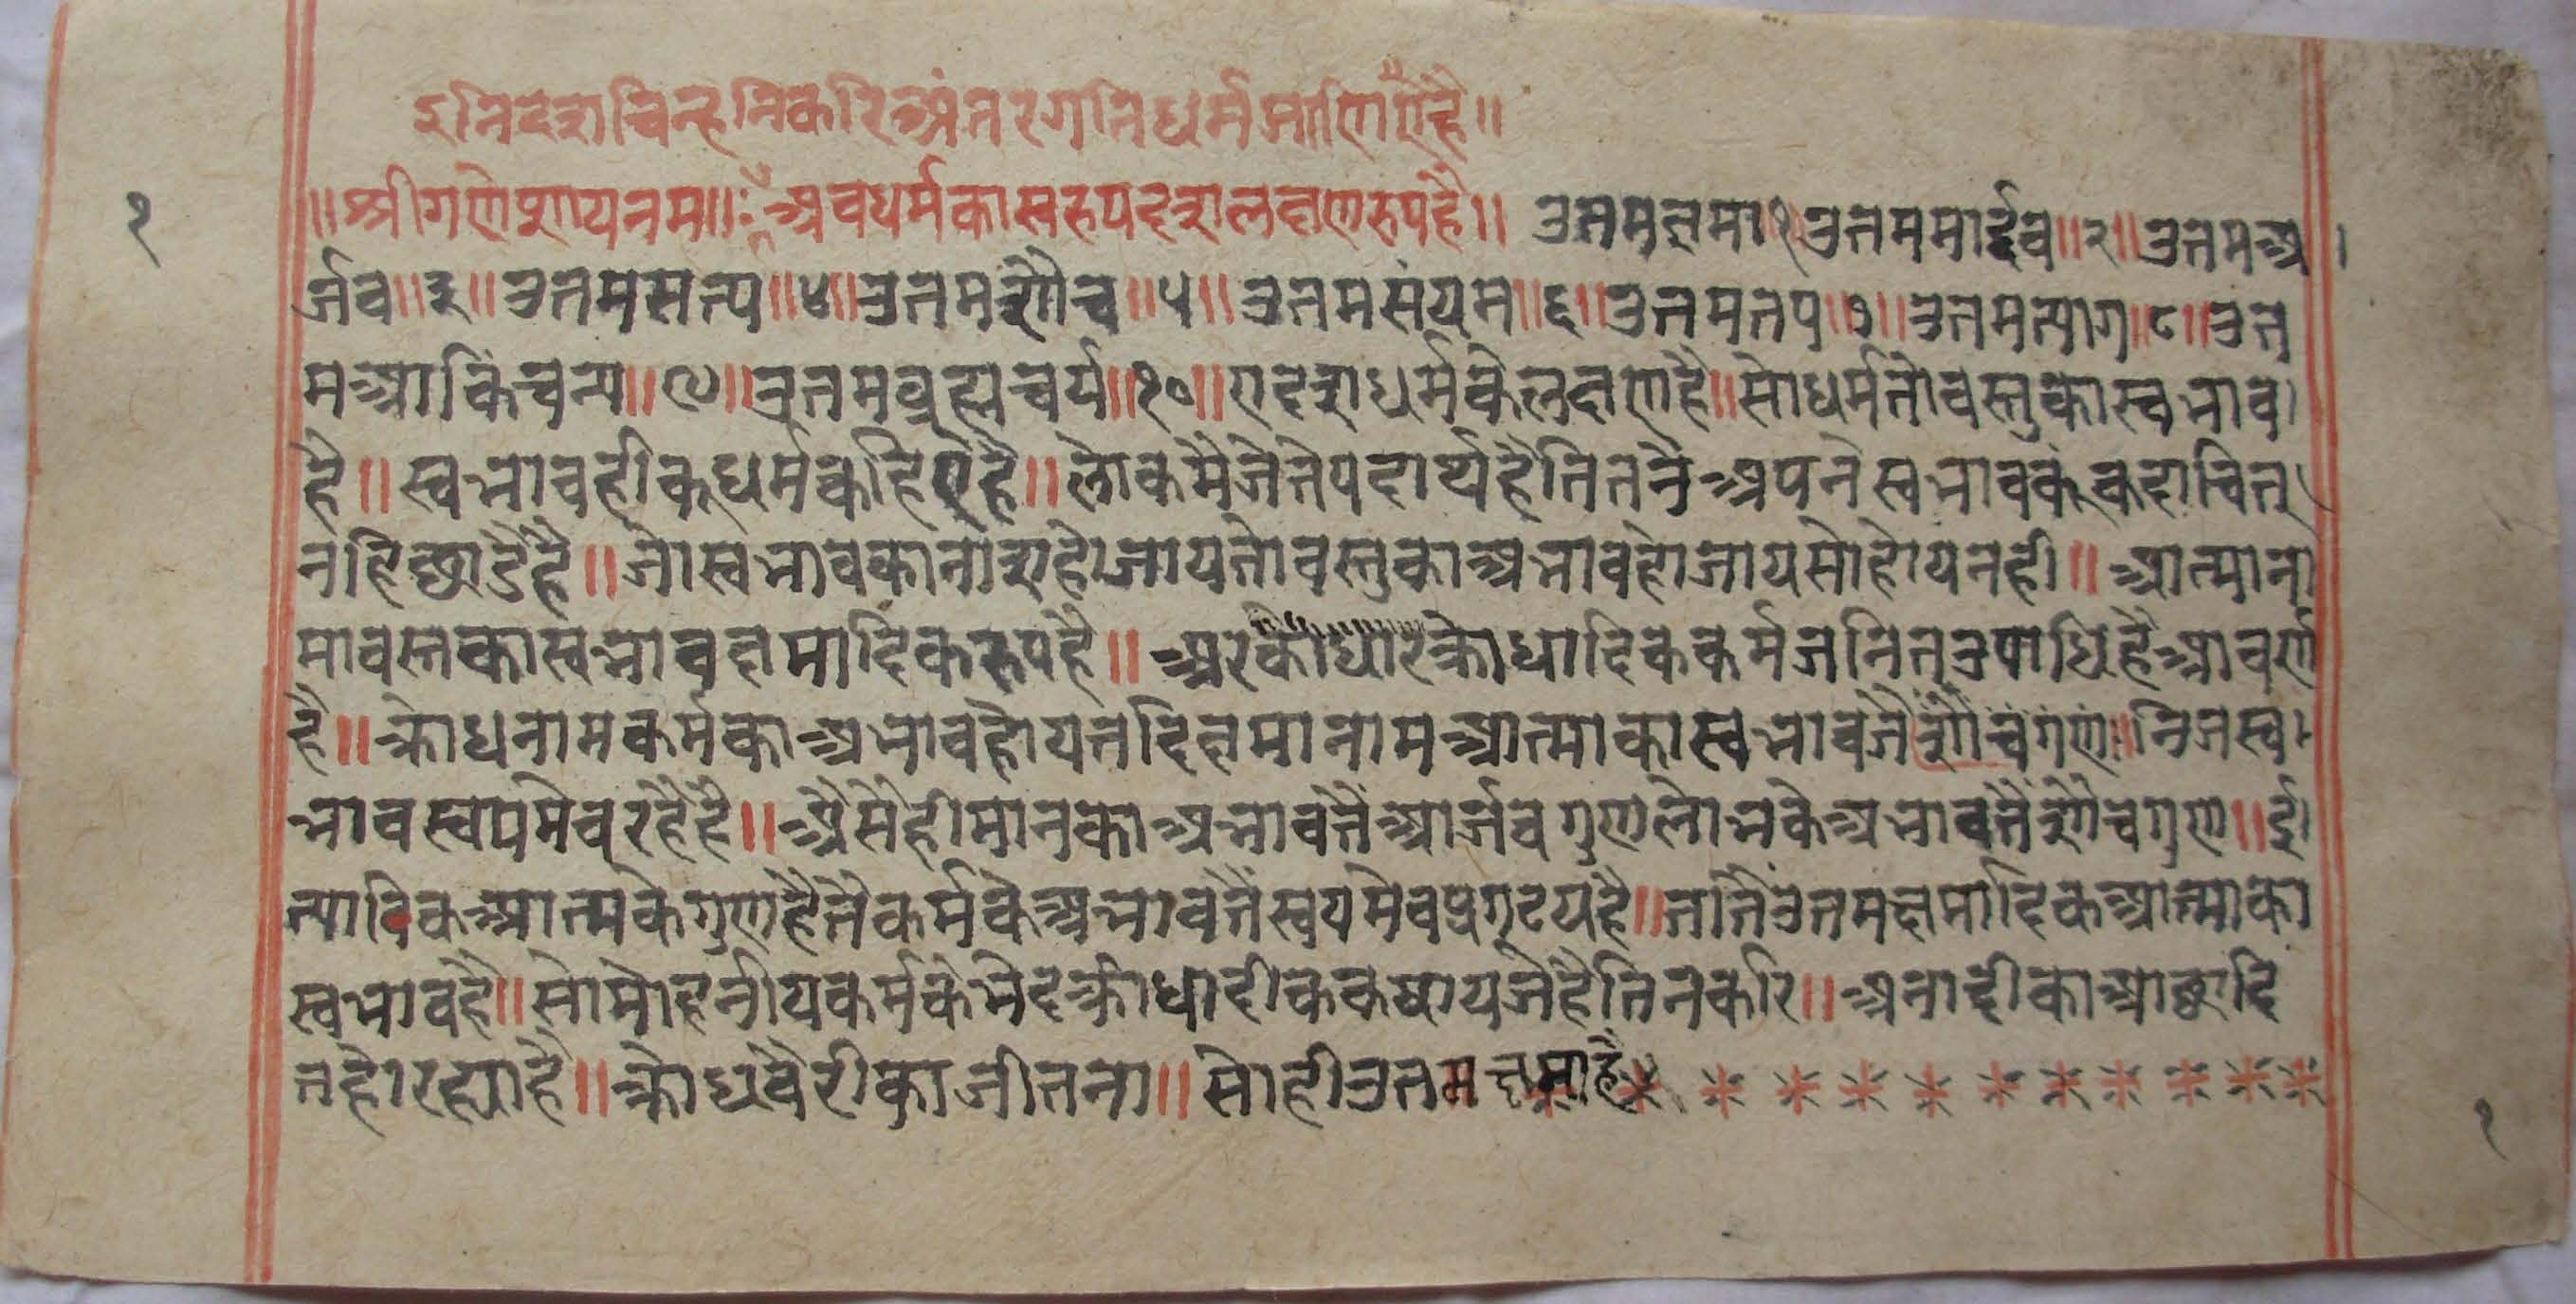 इनि दश चिन्ह निकरि अंतरगनि धर्म जाणिएैहै॥
१
॥श्रीगणेशायनम॥ः अवधर्मकास्वरुपदशलक्षणरुपहै॥ उतमक्षमा१उतममार्द्दव॥२॥उतमअ।
र्जव॥३॥उतमसत्य॥४॥उतमशौच॥५॥उतमसंयम॥६॥उतमतप॥७॥उतमत्याग॥८॥उत
मआकिंचन्य॥९॥उतमव्रह्मचर्य॥१०॥एदशधर्मकेलक्षणहै॥सोधर्मतोवस्तुकास्वभाव।
है॥स्वभावहीकूधर्मकहिएहै॥लोकमैजेतेपदार्थहैतितनैअपनेस्वभावकूंकदाचित्।
नहिछाडैहै॥जोस्वभावकानाशहोजायतोवस्तुकाअभावहोजायसोहोयनही॥आत्माना
मावस्तकास्वभावक्षमादिकरूपहै॥अरक्रोधादिककर्मजनितउपाधिहैआवर्ण
है॥क्रोधनामकर्मकाअभावहोयतदिक्षमानामआत्माकास्वभावजैशौचगुण॥निजस्व।
भावस्वपमेवरहैहै॥अैसैहीमानकाअभावतैआर्जवगुणलोभकेअभावतैशौचगुण॥ई।
त्यादिकआत्मकेगुणहैतैकर्मकेअभावतैस्वयमेवप्रगटयहै॥तातैउतमक्षमादिकआत्माका
स्वभावहै॥सोमोहनीयकर्मकेभेदक्रोधादीककषायजेहैतिनकरि॥अनादीकाआछादि
तहोरह्याहै॥क्रोधवैरीकाजीतना॥सोहीउतमक्षमाहै॥
१